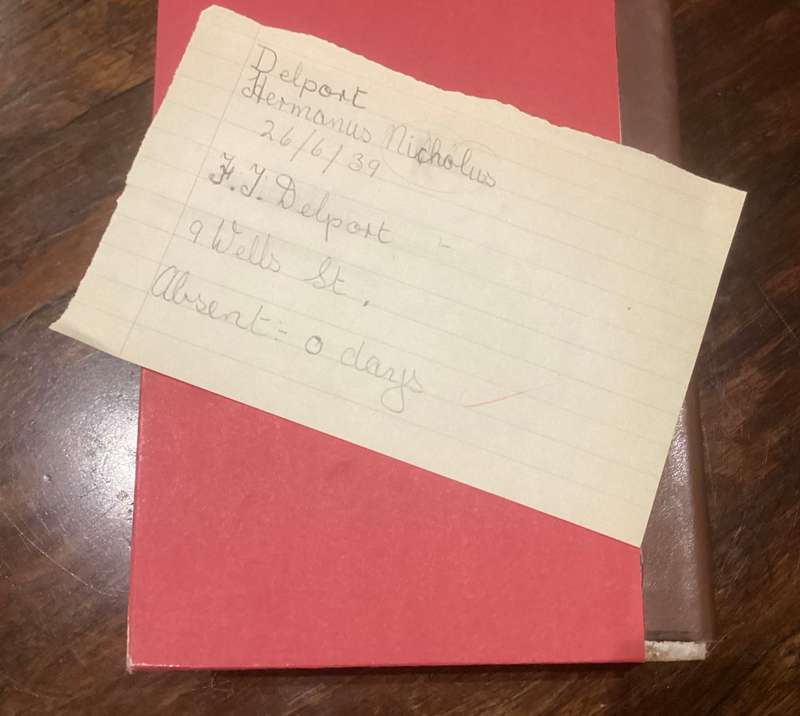 Delport
Hermanus Nicholus
26/6/39
F.J. Delport -
9 Wells St.
Absent:- 0 days